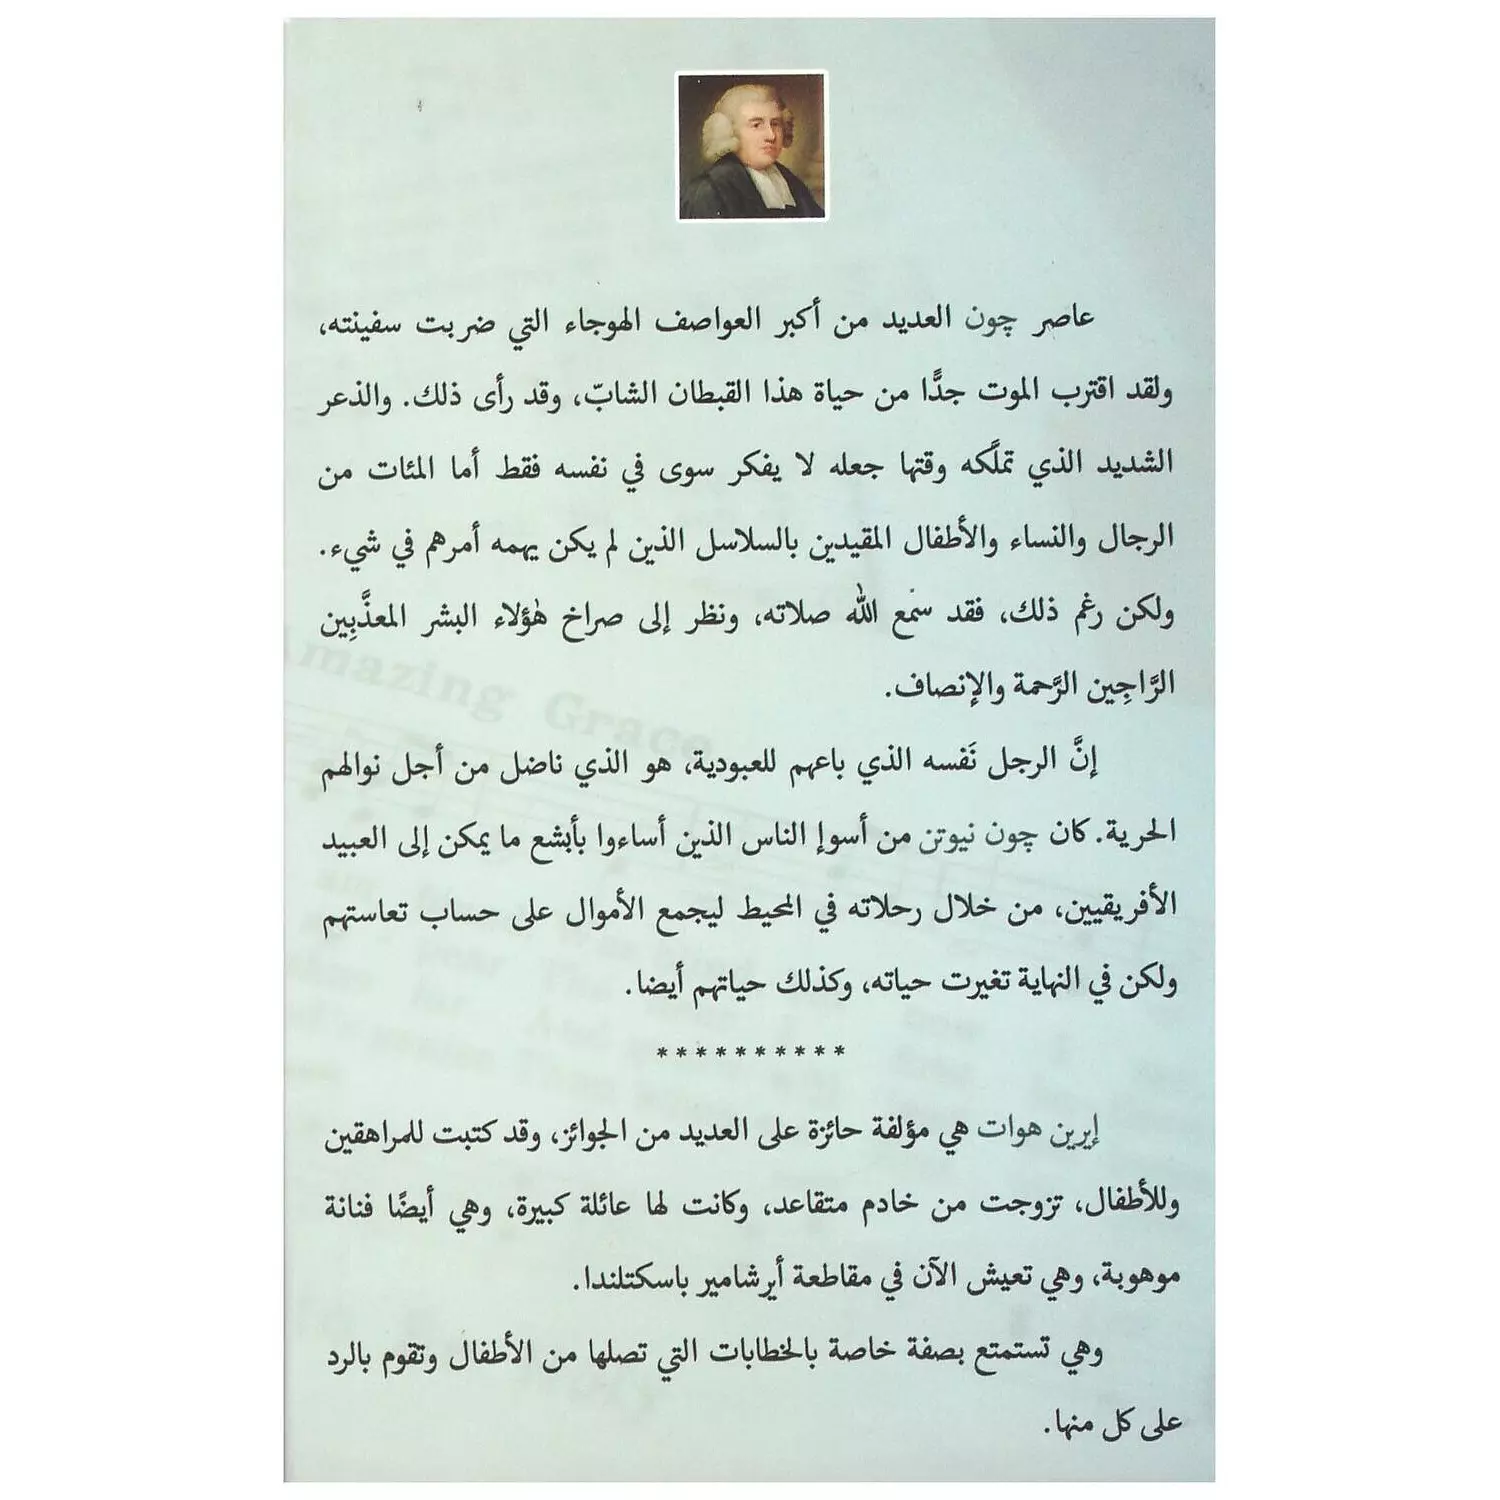 عاصر چون العديد من أكبر العواصف الهوجاء التي ضربت سفينته،
ولقد اقترب الموت جدًّا من حياة هذا القبطان الشابّ، وقد رأى ذلك. والذعر
الشديد الذي تملَّكه وقتها جعله لا يفكر سوى في نفسه فقط أما المئات من
الرجال والنساء والأطفال المقيدين بالسلاسل الذين لم يكن يهمه أمرهم في شيء.
ولكن رغم ذلك، فقد سمع الله صلاته، ونظر إلى صراخ هٰؤلاء البشر المعذَّبِين
الرَّاجِين الرَّحمة والإنصاف.
إنَّ الرجل نَفسه الذي باعهم للعبودية، هو الذي ناضل من أجل نوالهم
الحرية. كان چون نيوتن من أسوإ الناس الذين أساءوا بأبشع ما يمكن إلى العبيد
الأفريقيين، من خلال رحلاته في المحيط ليجمع الأموال على حساب تعاستهم
ولكن في النهاية تغيرت حياته، وكذلك حياتهم أيضا.
* * * * * * * * * *
إيرين هوات هي مؤلفة حائزة على العديد من الجوائز، وقد كتبت للمراهقين
وللأطفال، تزوجت من خادم متقاعد، وكانت لها عائلة كبيرة، وهي أيضًا فنانة
موهوبة، وهي تعيش الآن في مقاطعة أيرشامير باسكتلندا.
وهي تستمتع بصفة خاصة بالخطابات التي تصلها من الأطفال وتقوم بالرد
على كل منها.
Amazing Grace